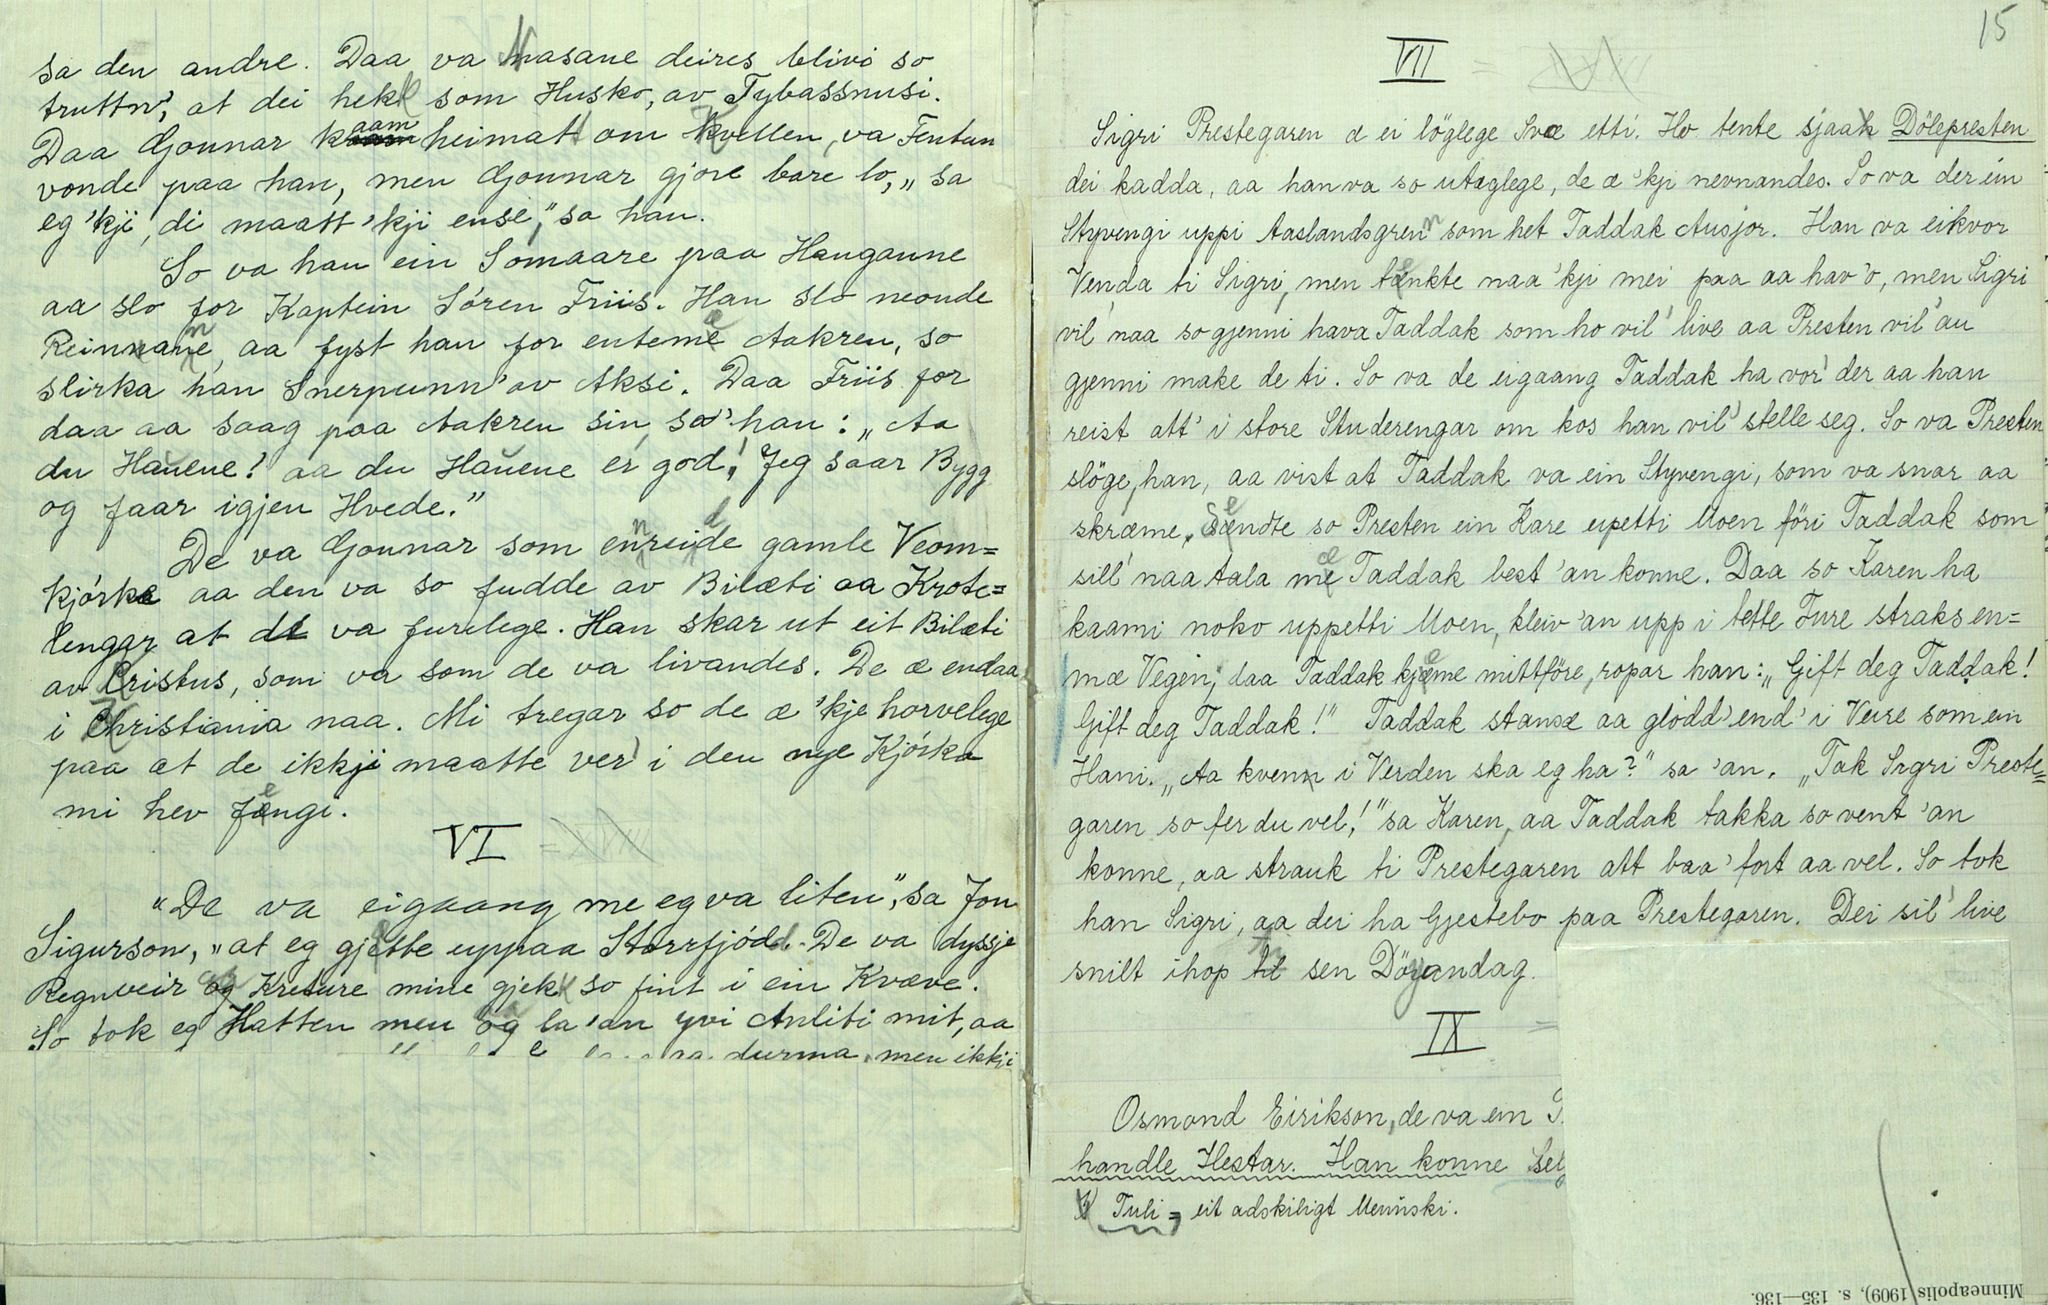 sa den andre. Daa va Nasane deires blivi so
truttn', at dei hekk som Husko, av Tybassnusi.
Daa Gonnar kaam heimatt om Kvellen, va Fentun
vonde paa han, men Gonnar gjore bare lo, „sa
eg 'kji, di maatt 'kji ense," sa han.
So va han ein Somaare paa Hauganne
aa slo for Kaptein Sören Friis. Han slo neonde
Reinnane, aa fyst han for entemæ Aakren, so
slirka han Snerpunn' av Aksi. Daa Friis for
daa aa saag paa Aakren sin, sa' han: „Aa
du Hauene! aa du Hauene er god! Jeg saar Bygg
og faar igjen Hvede."
De va Gonnar som enreide gamle Veom=
kjórka aa den va so fudde av Bilæti aa Krote=
lengar at de va furelege. Han skar ut eit Bilæti
av Kristus, som va som de va livandes. De æ endaa
i Christiania naa. Mi tregar so de æ 'kje horvelege
paa at de ikkji maatte ver' i den nye Kjórka
mi hev fengi.
VI
"De va eigaang me eg va liten", sa Jon
Sigurson, „at eg gjette uppaa Storrfjödd. De va dyssje
Regnveir og Kreture mine gjekk so fint i ein Kvæve.
So tok eg Hatten men og la 'an yvi Anliti mit, aa
durma, men ikkji
15
VII
Sigri Prestegaren æ ei löglege Svæ etti. Ho tente sjaak Dölepresten
dei kadda, aa han va so utæglege, de æ 'kji nevnandes. So va der ein
Styvengi uppi Aaslandsgrenn som het Taddak Ausjor. Han va eikvor
Venda ti Sigri, men tenkte naa 'kji mei paa aa hav 'o, men Sigri
vil' naa so gjenni hava Taddak som ho vil' live aa Presten vil' au
gjenni make de ti. So va de eigaang Taddak ha vor' der aa han
reist att' i store Studerengar om kos han vil' stelle seg. So va Presten
slöge, han, aa vist at Taddak va ein Styvengi, som va snar aa
skræme. Sendte so Presten ein Kare upetti Moen föri Taddak som
sill' naa tala mæ Taddak best 'an konne. Daa so Karen ha
kaami noko uppetti Moen, kleiv 'an upp i tette Fure straks en=
mæ Vegen; daa Taddak kjeme mittföre, ropar han: „Gift deg Taddak!
Gift deg Taddak!" Taddak stansæ aa glodd' end' i Veire som ein
Hani. „Aa kvenn i Verden ska eg ha?" sa 'an. „Tak Sigri Preste=
garen so fer du vel!" sa Karen, aa Taddak takka so vent 'an
konne, aa strauk ti Prestegaren att baa' fort aa vel. So tok
han Sigri, aa dei ha Gjestebo paa Prestegaren. Dei sil' live
snilt ihop sen Döyandag.
IX
Osmond Eirikson, de va ein
handle Hestar. Han konne
Tuli = eit adskiligt Menniski.
Minneapolis 1909), s. 135—136.